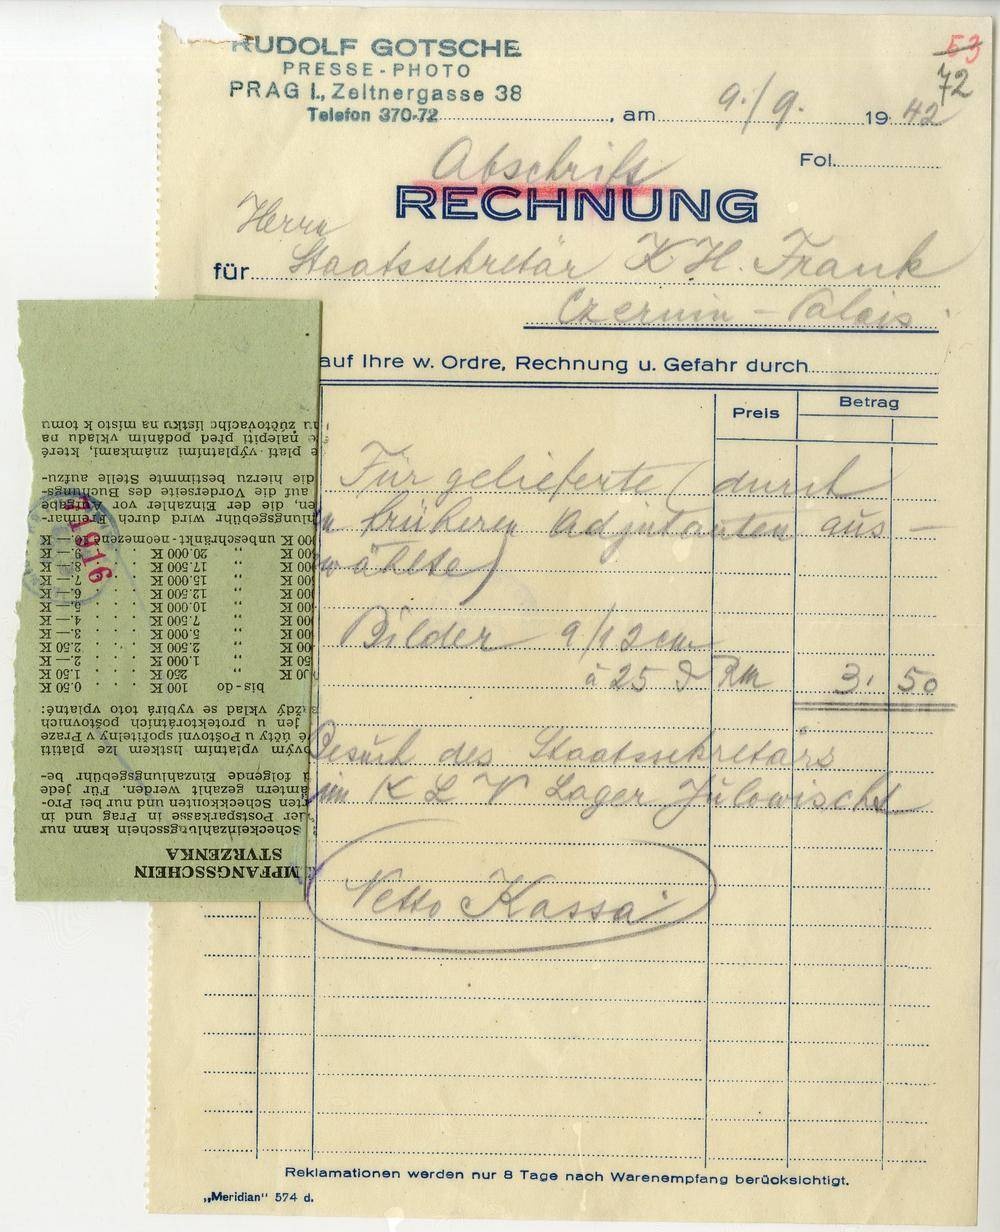 RUDOLF GOTSCHE
PRESSE-PHOTO
PRAG I., Zeltnergasse 38
Telefon 370-72
53
72
, am 9./9. 1942
Fol.
Abschrift
RECHNUNG
Herrn
für Staatssekretär K. H. Frank
Czernin - Palais
auf Ihre w. Ordre, Rechnung u. Gefahr durch
Preis
Betrag
Für gelieferte (durch
früheren Adjutanten aus-
wählte)
Bilder 9/12 cm
à 25 Rm 3. 50
Besuch des Staatssekretärs
im K L V Lager
Netto Kassa
Reklamationen werden nur 8 Tage nach Warenempfang berücksichtigt.
„Meridian" 574 d.
MPFANGSSCHEIN
STVRZENKA
Scheckeinzahlungsschein kann nur
der Postsparkasse in Prag und in
rten Scheckkonten und nur bei Pro-
ämtern gezahlt werden. Für jede
folgende Einzahlungsgebühr be-
ovým vplatním lístkem lze platiti
účty u Poštovní spořitelny v Praze
jen u protektorátních poštovních
aždý vklad se vybírá toto vplatné:
bis-do 100 K 0.50 K
00 K „ 250 K . . . 1.50 K
50 K „ 1.000 K . . . 2.— K
00 K „ 2.500 K . . . 2.50 K
00 K „ 5.000 K . . . 3.— K
00 K „ 7.500 K . . . 4.— K
00 K „ 10.000 K . . . 5.— K
00 K „ 12.500 K . . . 6.— K
00 K „ 15.000 K . . . 7.— K
00 K „ 17.500 K . . . 8.— K
00 K „ 20.000 K . . . 9.— K
000 K unbeschränkt-neomezeně 10.— K
hlungsgebühr wird durch Freimar-
en, die der Einzahler vor Aufgabe
auf die Vorderseite des Buchungs-
die hierzu bestimmte Stelle aufzu-
e platí výplatními známkami, které
e nalepiti před podáním vkladu na
nu zúčtovacího lístku na místo k tomu
61916